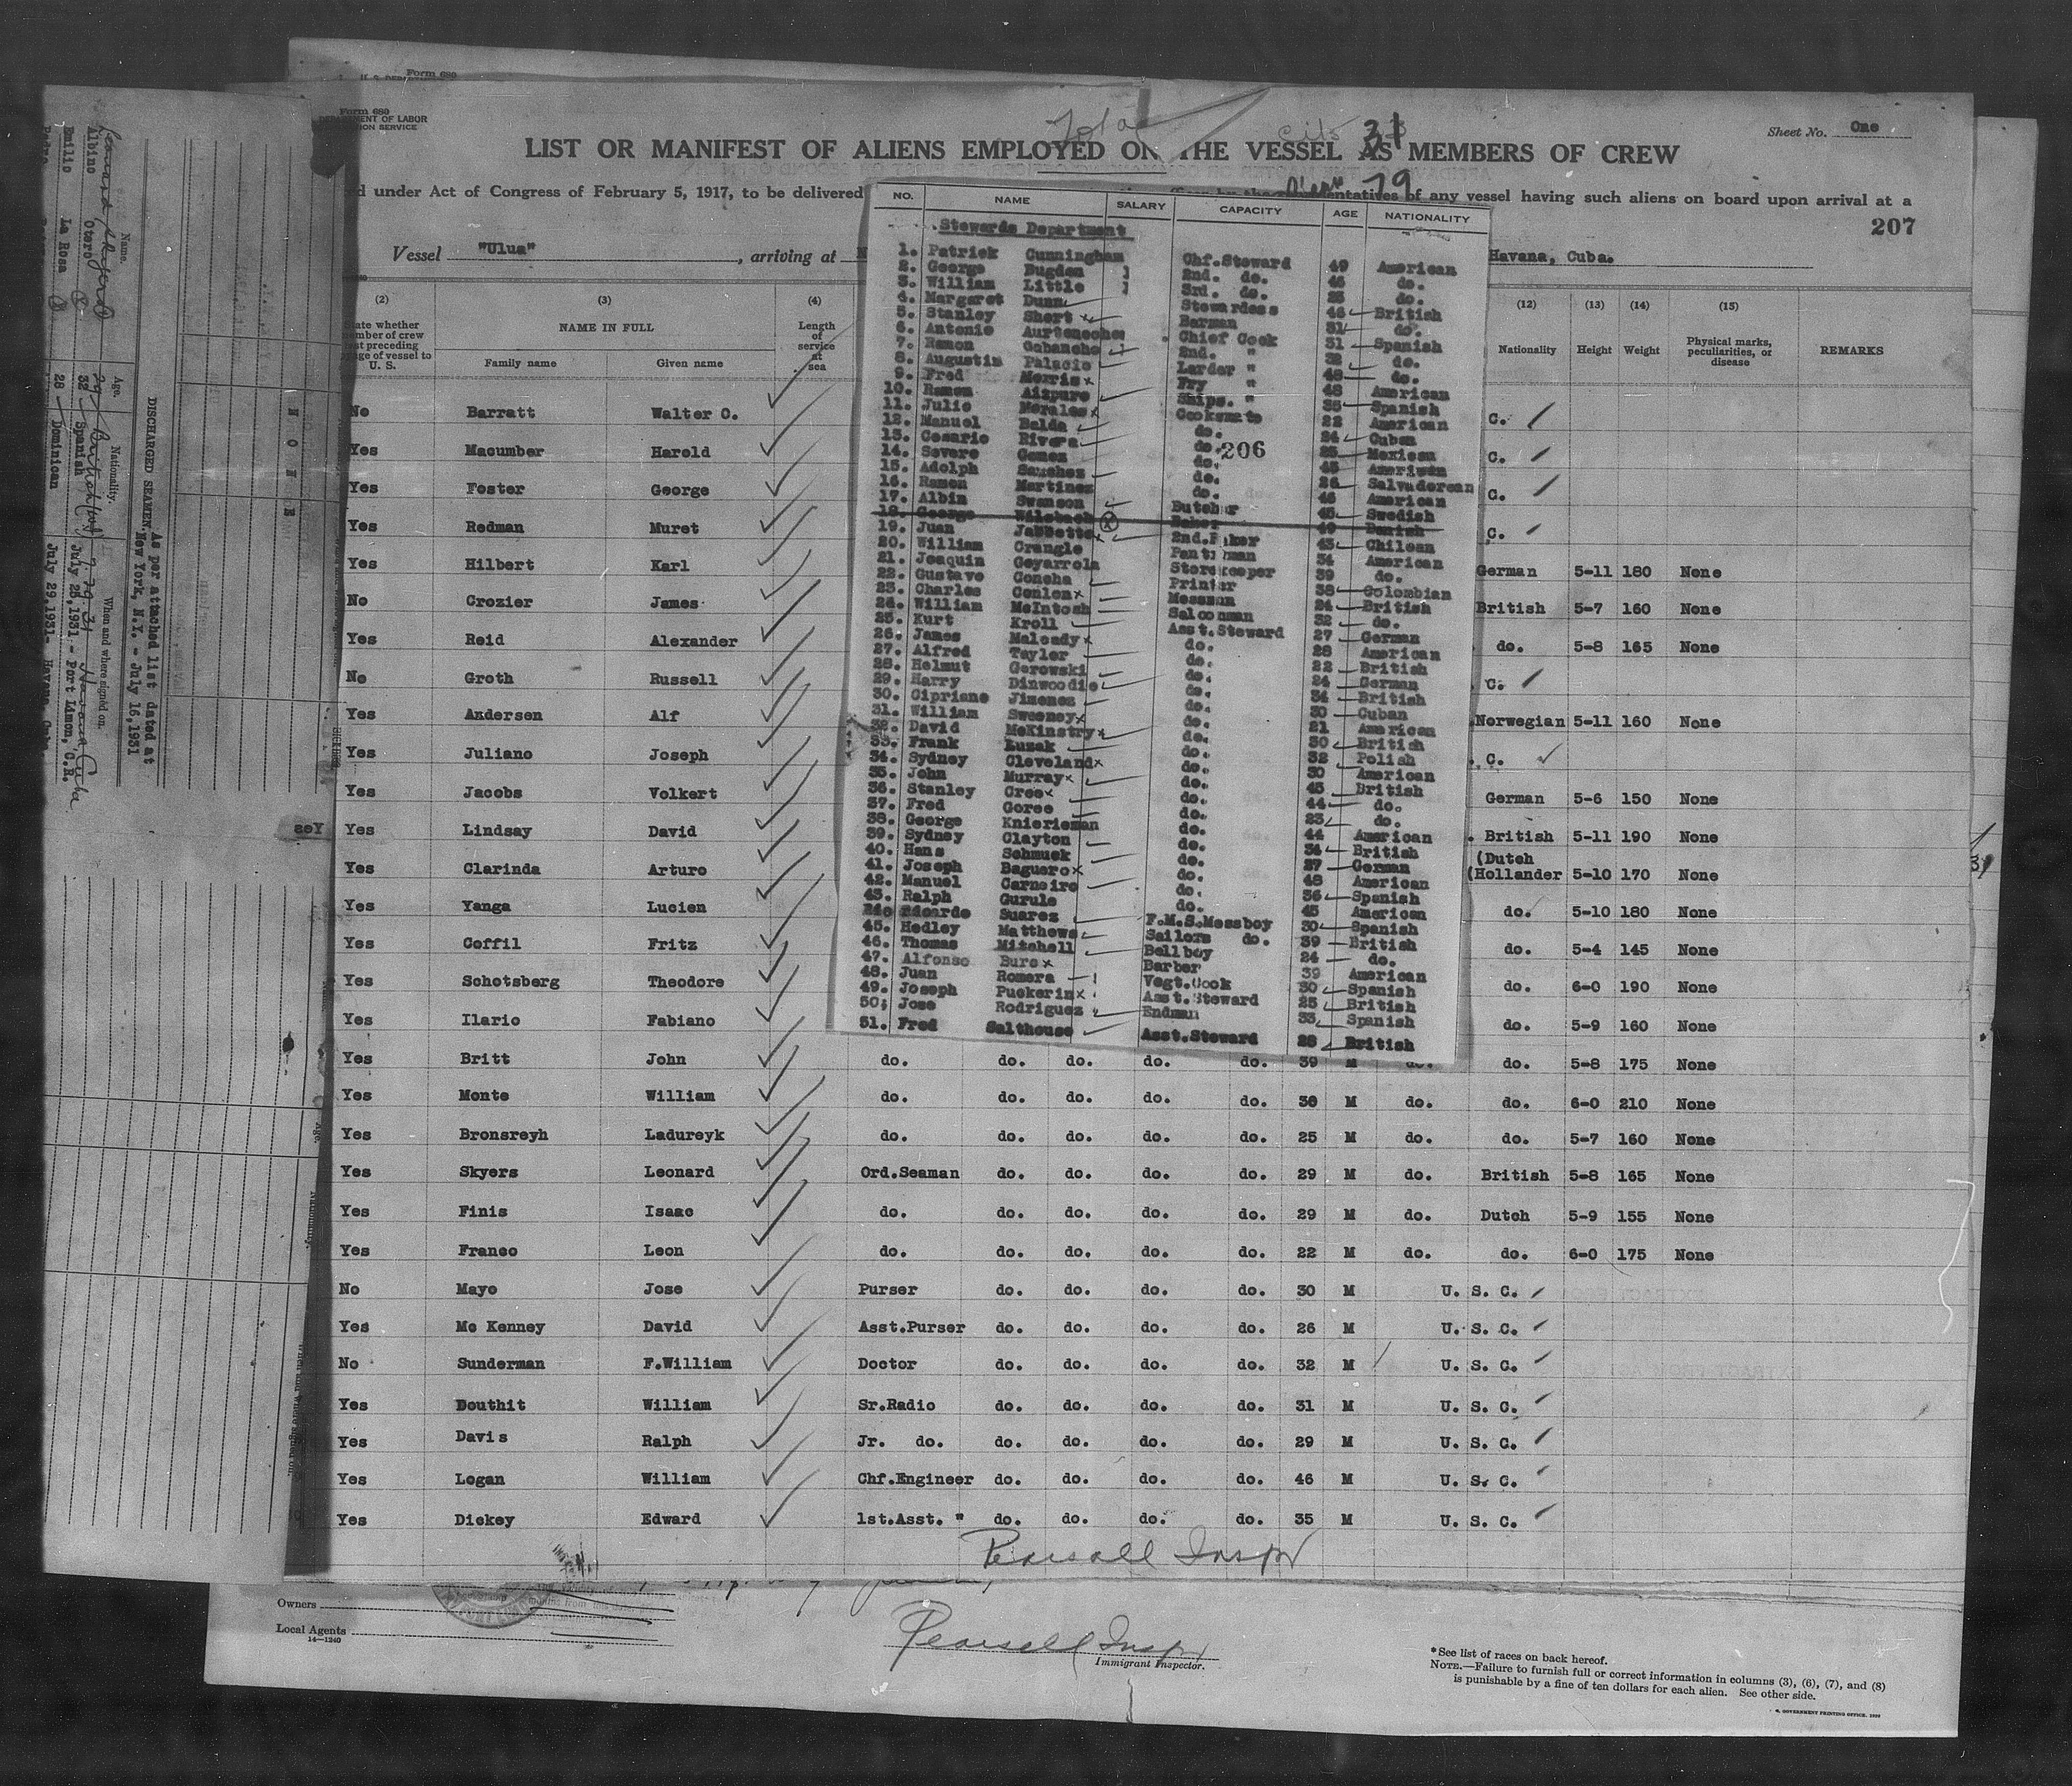 Form 689
Form 689
DEPARTMENT OF LABOR
Total
31
Sheet No. One
LIST OR MANIFEST OF ALIENS EMPLOYED ON THE VESSEL AS MEMBERS OF CREW
under Act of Congress of February 5, 1917, to be delivered
79
of any vessel having such aliens on board upon arrival at a
207
Vessel "Ulua", arriving at
Havana, Cuba.
(2) (3) (4)
NAME IN FULL
Length of service at sea
Family name Given name
(12) (13) (14) (15)
Nationality Height Weight Physical marks, peculiarities, or disease REMARKS
No Barratt Walter O. C.
Yes Macumber Harold C.
Yes Foster George C.
Yes Redman Muret C.
Yes Hilbert Karl German 5-11 180 None
No Crozier James British 5-7 160 None
Yes Reid Alexander do. 5-8 165 None
No Groth Russell C.
Yes Andersen Alf Norwegian 5-11 160 None
Yes Juliano Joseph C.
Yes Jacobs Volkert German 5-6 150 None
Yes Lindsay David British 5-11 190 None
Yes Clarinda Arturo (Dutch (Hollander 5-10 170 None
Yes Yanga Lucien do. 5-10 180 None
Yes Coffil Fritz do. 5-4 145 None
Yes Schotsberg Theodore do. 6-0 190 None
Yes Ilario Fabiano do. 5-9 160 None
Yes Britt John do. do. do. do. do. 39 M do. do. 5-8 175 None
Yes Monte William do. do. do. do. do. 38 M do. do. 6-0 210 None
Yes Bronsreyh Ladureyk do. do. do. do. do. 25 M do. do. 5-7 160 None
Yes Skyers Leonard Ord.Seaman do. do. do. do. 29 M do. British 5-8 165 None
Yes Finis Isaac do. do. do. do. do. 29 M do. Dutch 5-9 155 None
Yes Franco Leon do. do. do. do. do. 22 M do. do. 6-0 175 None
No Mayo Jose Purser do. do. do. do. 30 M U. S. C.
Yes Mc Kenney David Asst.Purser do. do. do. do. 26 M U. S. C.
No Sunderman F.William Doctor do. do. do. do. 32 M U. S. C.
Yes Douthit William Sr.Radio do. do. do. do. 31 M U. S. C.
Yes Davis Ralph Jr. do. do. do. do. do. 29 M U. S. C.
Yes Logan William Chf.Engineer do. do. do. do. 46 M U. S. C.
Yes Dickey Edward 1st.Asst. " do. do. do. do. 35 M U. S. C.
Pearsall Inspr
NO. NAME SALARY CAPACITY AGE NATIONALITY
Stewards Department
1. Patrick Cunningham Chf.Steward 49 American
2. George Bugden 2nd. do. 46 do.
3. William Little 3rd. do. do.
4. Margaret Dunn Stewardess 46 British
5. Stanley Short Barman 31 do.
6. Antonio Chief Cook 31 Spanish
7. Ramon Gobancho 2nd. " 32 do.
8. Augustin Palacio Larder " 48 do.
9. Fred Morris Fry " 48 American
10. Ramon Aizpure Ships. " 35 Spanish
11. Julio Morales Cooksmate 22 American
12. Manuel Balda do. 24 Cuban
13. Cesario Rivera do. 25 Mexican
206
14. Severo Gomez do. 45 American
15. Adolph Sanchez do. 26 Salvadorean
16. Ramon Martinez do. 46 American
17. Albin Swanson Butcher 45 Swedish
18. George Baker 49 Danish
19. Juan 2nd.Baker 43 Chilean
20. William Crangle Pantryman 34 American
21. Joaquin Goyarrola Storekeeper 39 do.
22. Gustavo Concha Printer 38 Colombian
23. Charles Conlon Messman 24 British
24. William McIntosh Saloonman 32 do.
25. Kurt Kroll Asst.Steward 27 German
26. James Maleady do. 28 American
27. Alfred Taylor do. 22 British
28. Helmut Gorowski do. 24 German
29. Harry Dinwoodie do. 34 British
30. Cipriano Jimenez do. 30 Cuban
31. William Sweeney do. 21 American
32. David McKinstry do. 30 British
33. Frank Luzak do. 32 Polish
34. Sydney Cleveland do. 30 American
35. John Murray do. 45 British
36. Stanley Cree do. 44 do.
37. Fred Goree do. 23 do.
38. George Knierieman do. 44 American
39. Sydney Clayton do. 34 British
40. Hans Schmuck do. 27 German
41. Joseph Baguero do. 48 American
42. Manuel Carneiro do. 36 Spanish
43. Ralph Gurule do. 45 American
44. Ricardo Suarez F.M.S.Messboy 30 Spanish
45. Hedley Matthews Sailors do. 39 British
46. Thomas Mitchell Bellboy 24 do.
47. Alfonso Buro Barber 39 American
48. Juan Romera Vegt.Cook 30 Spanish
49. Joseph Puckerin Asst.Steward 25 British
50. Jose Rodriguez Endman 33 Spanish
51. Fred Salthouse Asst.Steward 28 British
Name. Age. Nationality. When and where signed on.
Leonard Skyers 29 British 7.29.31 Havana, Cuba
Albino Otero 32 Spanish July 25,1931 - Port Limon, C.R.
Emilio La Rosa 28 Dominican July 29,1931- Havana, Cuba
DISCHARGED SEAMEN. As per attached list dated at
New York, N.Y. - July 16,1931
NONE
Yes
Owners
Local Agents
14—1240
Pearsall Inspr
Immigrant Inspector.
*See list of races on back hereof.
NOTE.—Failure to furnish full or correct information in columns (3), (6), (7), and (8)
is punishable by a fine of ten dollars for each alien. See other side.
GOVERNMENT PRINTING OFFICE